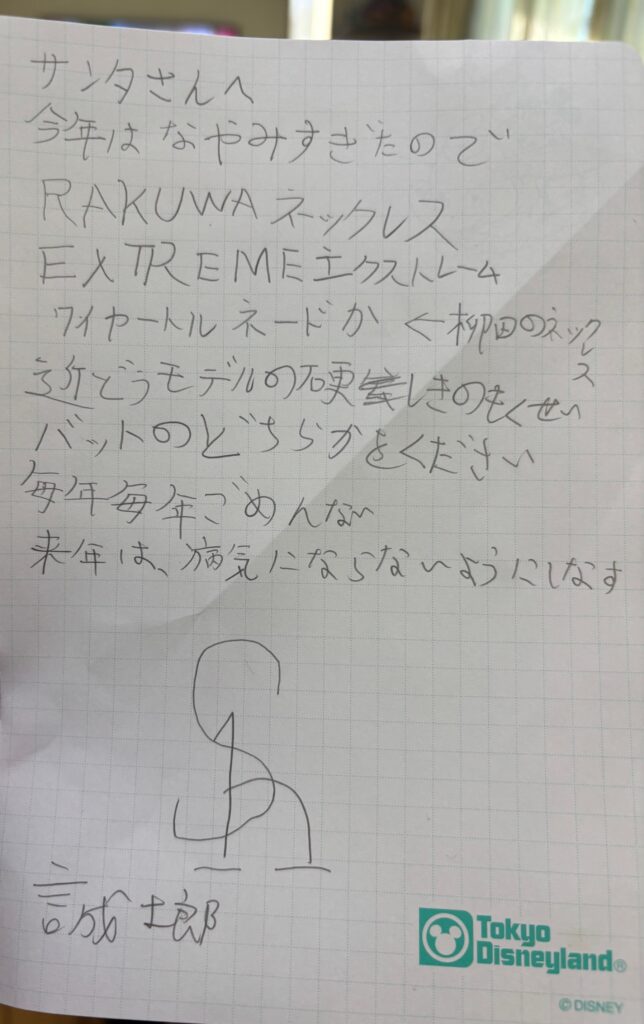 サンタさんへ
今年はなやみすぎたので
RAKUWAネックレス
EXTREMEエクストレーム
ワイヤートルネードか ←柳田のネックレス
近どうモデルの硬しきのもくせい
バットのどちらかをください
毎年毎年ごめんない
来年は、病気にならないようにしなす
誠士郎
Tokyo
Disneyland®
© DISNEY